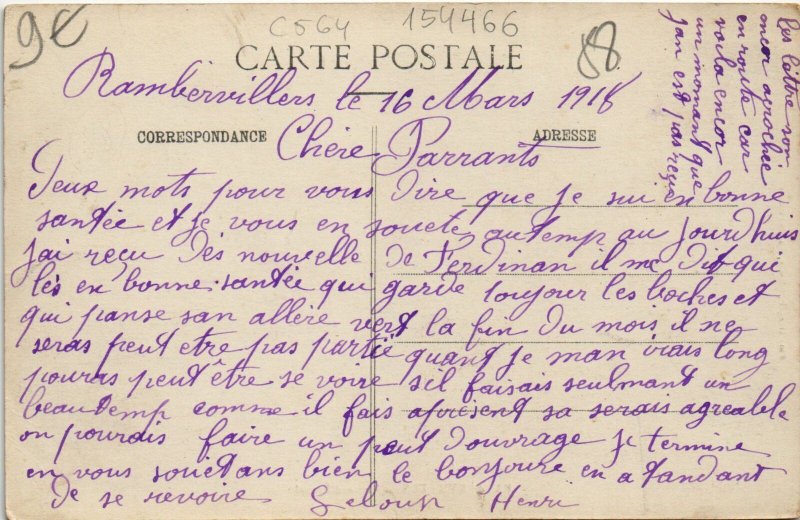 9€
C564
154466
88
CARTE POSTALE
Rambervillers le 16 Mars 1918
CORRESPONDANCE
ADRESSE
Chère Parrants
Deux mots pour vous dire que je sui en bonne
santée et je vous en souete autemp au jourdhuis
jai reçu des nouvelle de Ferdinan il me dit qui
les en bonne santée qui garde toujour les boches et
qui panse san allere vert la fin du mois il ne
seras peut etre pas partie quant je man virais long
pouras peut être se voire sil faisais seulmant un
beautemp comme il fais apresent sa serais agreable
on pourais faire un peut douvrage je termine
en vous souetans bien le bonjoure en atandant
de se revoire Leloup Henri
les lèttre son
oncor acrochée
en route car
voila encor
un momant que
jan est pas reçu